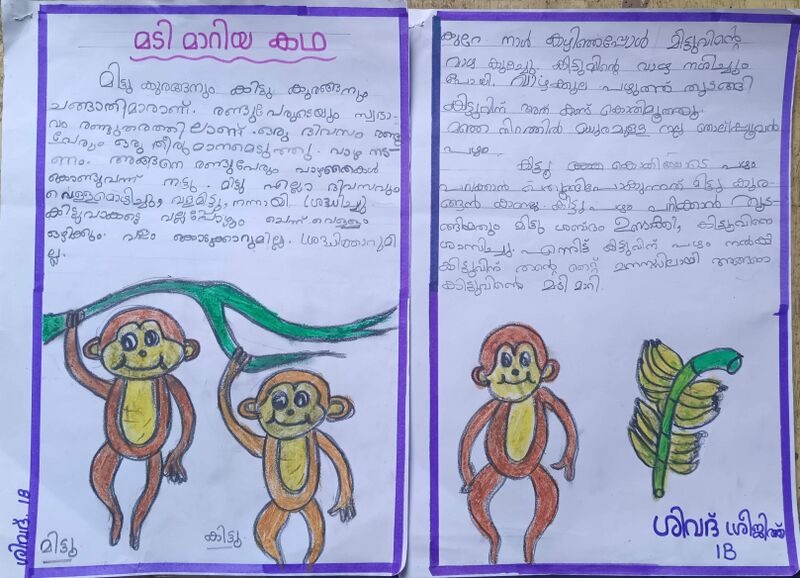 മടി മാറിയ കഥ
മിട്ടു കുരങ്ങനും കിട്ടു കുരങ്ങനും
ചങ്ങാതിമാരാണ്. രണ്ടുപേരുടെയും സ്വഭാ-
വം രണ്ടുതരത്തിലാണ്. ഒരു ദിവസം രണ്ടു
പേരും ഒരു തീരുമാനമെടുത്തു. വാഴ നട-
ണം. അങ്ങനെ രണ്ടുപേരും വാഴതൈകൾ
കൊണ്ടുവന്ന് നട്ടു. മിട്ടു എല്ലാ ദിവസവും
വെള്ളമൊഴിച്ചും, വളമിട്ടു, നന്നായി ശ്രദ്ധിച്ചു
കിട്ടുവാകട്ടെ വല്ലപ്പോഴും ചെന്ന് വെള്ളം
ഒഴിക്കും. വളം കൊടുക്കാറുമില്ല. ശ്രദ്ധിക്കാറുമി
ല്ല.
മിട്ടു
കിട്ടു
ശിവദ്. 1B
കുറേ നാൾ കഴിഞ്ഞപ്പോൾ മിട്ടുവിന്റെ
വാഴ കുലച്ചു. കിട്ടുവിന്റെ വാഴ നശിച്ചും
പോയി. വാഴക്കുല പഴുത്തു തുടങ്ങി
കിട്ടുവിന് അത് കണ്ട് കൊതിമൂത്തു.
മഞ്ഞ നിറത്തിൽ മധുരമുള്ള നല്ല
പഴം.
കിട്ടു കൊതിയോടെ പഴം
പറിക്കാൻ മിട്ടു കുര-
ങ്ങൻ കണ്ടു. കിട്ടു പഴം പറിക്കാൻ തുട-
ങ്ങിയതും മിട്ടു ശബ്ദം ഉണ്ടാക്കി, കിട്ടുവിനെ
ശാസിച്ചു. എന്നിട്ട് കിട്ടുവിന് പഴം നൽകി
കിട്ടുവിന് തന്റെ തെറ്റ് മനസ്സിലായി അങ്ങനെ
കിട്ടുവിന്റെ മടി മാറി.
ശിവദ് ശ്രീജിത്ത്
1B